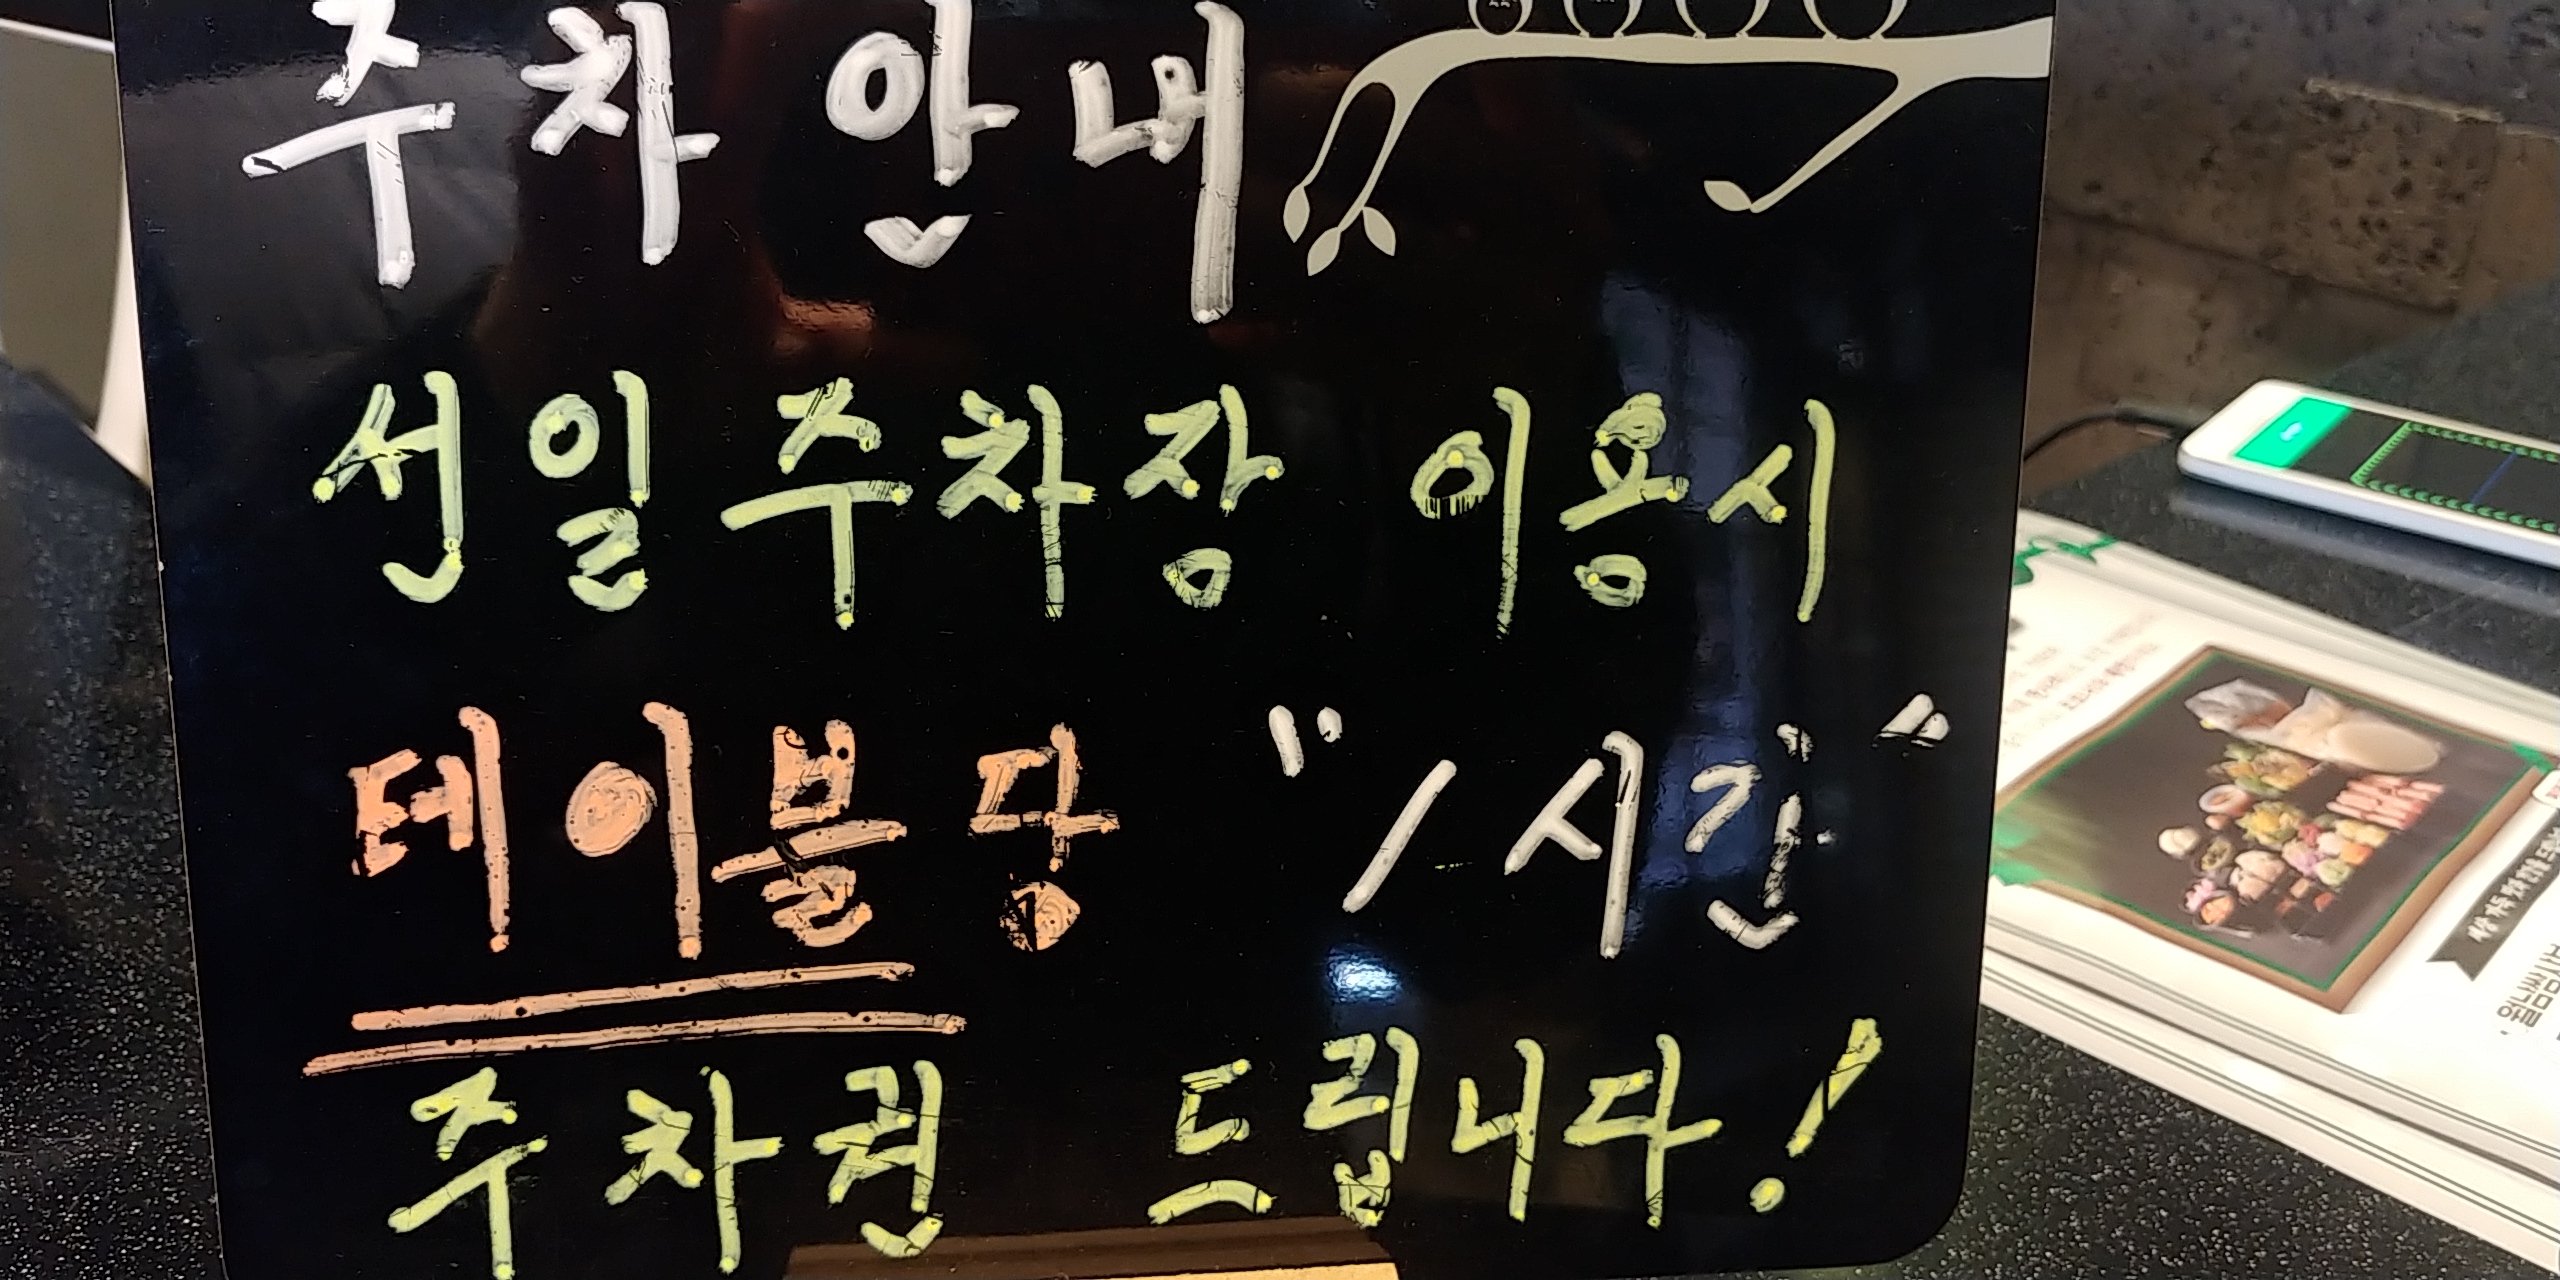 주차 안내
선일주차장 이용시
테이블당 "1시간"
주차권 드립니다!